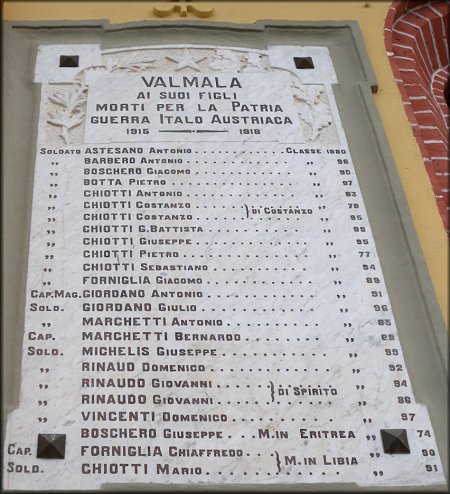 VALMALA
AI SUOI FIGLI
MORTI PER LA PATRIA
GUERRA ITALO AUSTRIACA
1915 1918
SOLDATO ASTESANO ANTONIO CLASSE 1880
" BARBERO ANTONIO " 96
" BOSCHERO GIACOMO " 90
" BOTTA PIETRO " 97
" CHIOTTI ANTONIO " 93
" CHIOTTI COSTANZO } DI COSTANZO " 78
" CHIOTTI COSTANZO " 95
" CHIOTTI G. BATTISTA " 99
" CHIOTTI GIUSEPPE " 95
" CHIOTTI PIETRO " 77
" CHIOTTI SEBASTIANO " 94
" FORNIGLIA GIACOMO " 89
CAP.MAG. GIORDANO ANTONIO " 91
SOLD. GIORDANO GIULIO " 96
" MARCHETTI ANTONIO " 85
CAP. MARCHETTI BERNARDO " 89
SOLD. MICHELIS GIUSEPPE " 99
" RINAUD DOMENICO " 92
" RINAUDO GIOVANNI } DI SPIRITO " 94
" RINAUDO GIOVANNI " 86
" VINCENTI DOMENICO " 97
BOSCHERO GIUSEPPE M. IN ERITREA " 74
CAP. FORNIGLIA CHIAFFREDO } M. IN LIBIA " 90
SOLD. CHIOTTI MARIO " 91